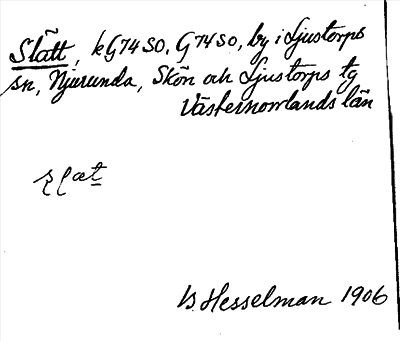 Slätt, kG74SO, G74SO, by i Ljustorps
sn, Njurunda, Skön och Ljustorps tg
Västernorrlands län
B. Hesselman 1906